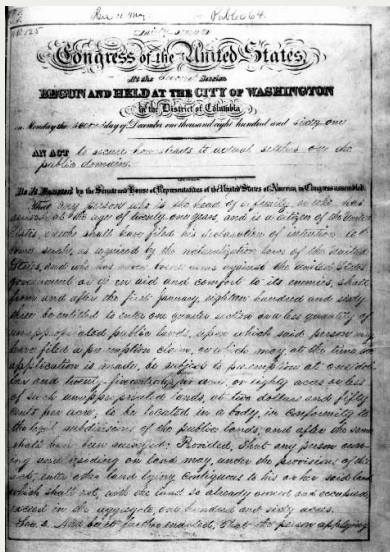 Public 64.
Congress of the United States,
At the Second Session
BEGUN AND HELD AT THE CITY OF WASHINGTON
in the District of Columbia
on Monday the second day of December one thousand eight hundred and sixty-one
AN ACT to secure homesteads to actual settlers on the
public domain.
Be it enacted by the Senate and House of Representatives of the United States of America in Congress assembled,
That any person who is the head of a family, or who has
arrived at the age of twenty one years, and is a citizen of the United
States, or who shall have filed his declaration of intention to be
come such, as required by the naturalization laws of the United
States, and who has never borne arms against the United States
government or given aid and comfort to its enemies, shall
from and after the first January, eighteen hundred and sixty
three, be entitled to enter one quarter section or a less quantity of
unappropriated public lands, upon which said person may
have filed a preemption claim, or which may, at the time the
application is made, be subject to preemption at one dol
lar and twenty five cents, or less, per acre; or eighty acres or less
of such unappropriated lands, at two dollars and fifty
cents per acre, to be located in a body, in conformity to
the legal subdivisions of the public lands, and after the same
shall have been surveyed: Provided, That any person own
ing and residing on land may, under the provisions of this
act, enter other land lying contiguous to his or her said land,
which shall not, with the land so already owned and occupied,
exceed in the aggregate one hundred and sixty acres.
Sec. 2. And be it further enacted, That the person applying